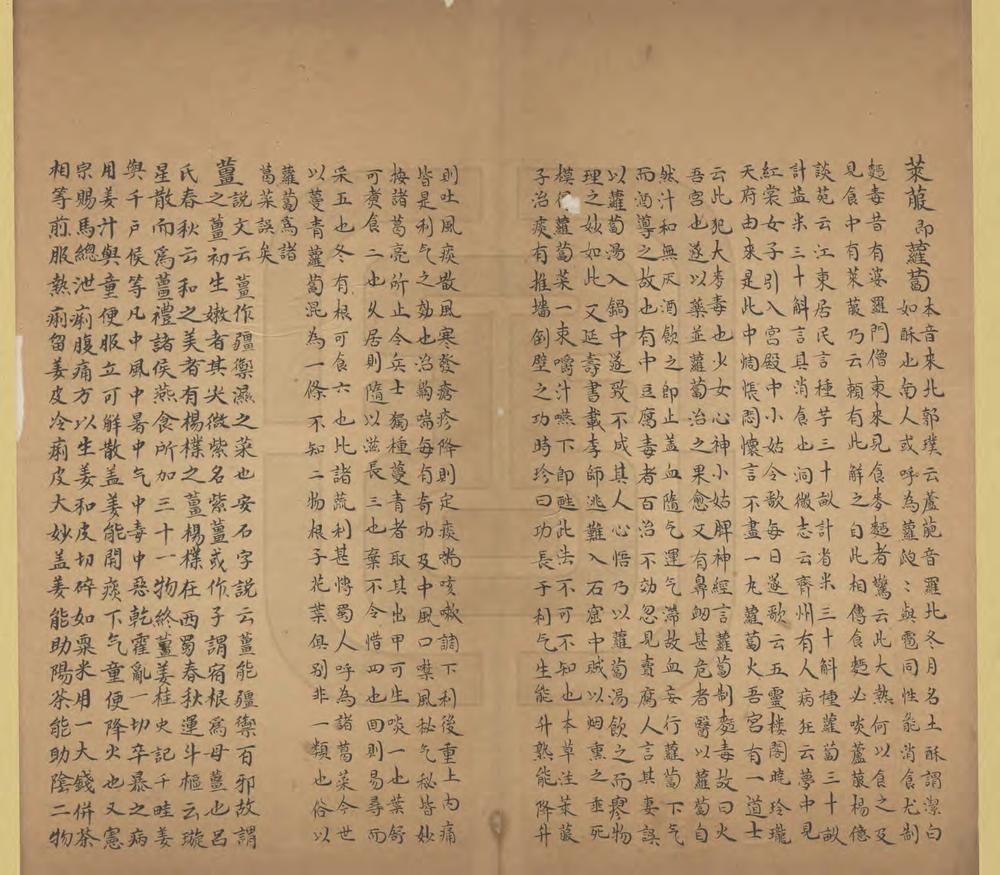 萊菔即蘿蔔本音來北郭璞云蘆萉音羅北冬月名土酥謂潔白
如酥也南人或呼為蘿瓟瓟與雹同性能消食尤制
麵毒昔有婆羅門僧東來見食麥麵者驚云此大熱何以食之及
見食中有萊菔乃云賴有此解之自此相傳食麵必啖蘆菔楊億
談苑云江東居民言種芋三十畝計省米三十斛種蘿蔔三十畝
計益米三十斛言其消食也洞微志云齊州有人病狂云夢中見
紅裳女子引入宮殿中小姑令歌每日遂歌云五靈樓閣曉玲瓏
天府由來是此中惆悵悶懷言不盡一丸蘿蔔火吾宮有一道士
云此犯大麥毒也少女心神小姑脾神經言蘿蔔制麪毒故曰火
吾宮也遂以藥並蘿蔔治之果愈又有鼻衂甚危者醫以蘿蔔自
然汁和無灰酒飲之即止蓋血隨气運气滯故血妄行蘿蔔下气
而酒導之故也有中豆腐毒者百治不効忽見賣腐人言其妻誤
以蘿蔔湯入鍋中遂致不成其人心悟乃以蘿蔔湯飲之而瘳物
理之妙如此又延壽書載李師逃難入石窟中賊以烟熏之垂死
摸得蘿蔔菜一束嚼汁嚥下即甦此法不可不知也本草注萊菔
子治痰有推墻倒壁之功時珍曰功長于利气生能升熟能降升
則吐風痰散風寒發瘡疹降則定痰喘咳嗽調下利後重止内痛
皆是利气之効也治齁喘每有奇功及中風口噤風秘气秘皆妙
按諸葛亮所止令兵士獨種蔓青者取其出甲可生啖一也葉舒
可煑食二也久居則隨以滋長三也棄不令惜四也回則易尋而
采五也冬有根可食六也比諸蔬利甚愽蜀人呼為諸葛菜今世
以蔓青蘿蔔混為一條不知二物根子花葉俱别非一類也俗以
蘿蔔為諸
葛菜誤矣
薑說文云薑作彊禦濕之菜也安石字說云薑能彊禦百邪故謂
之薑初生嫩者其尖微紫名紫薑或作子謂宿根爲母薑也呂
氏春秋云和之美者有楊樸之薑楊樸在西蜀春秋運斗樞云璇
星散而爲薑禮諸侯燕食所加三十一物終薑姜桂史記千畦姜
與千户侯等凡中風中暑中气中毒中惡乾霍亂一切卒暴之病
用姜汁與童便服立可解散盖姜能開痰下气童便降火也又憲
宗賜馬總泄痢腹痛方以生姜和皮切碎如粟米用一大錢併茶
相等煎服熱痢留姜皮冷痢皮大妙盖姜能助陽茶能助陰二物